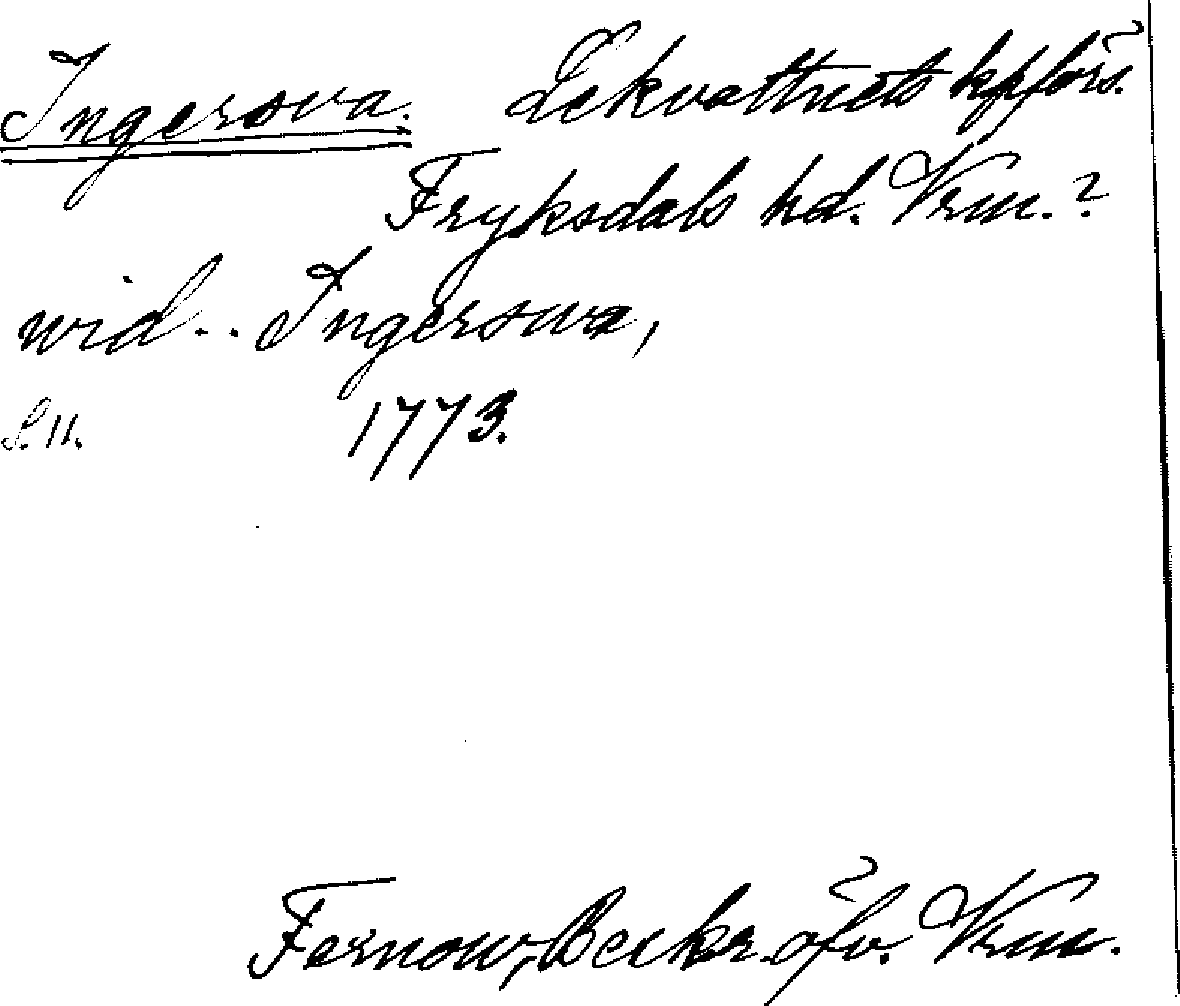 Ingersva. Lekvattnets kpförs.
Fryksdals hd. Vrm.?
wid.. Ingerswa,
S. 11. 1773.
Fernow, Beskr. öfv. Vrm.